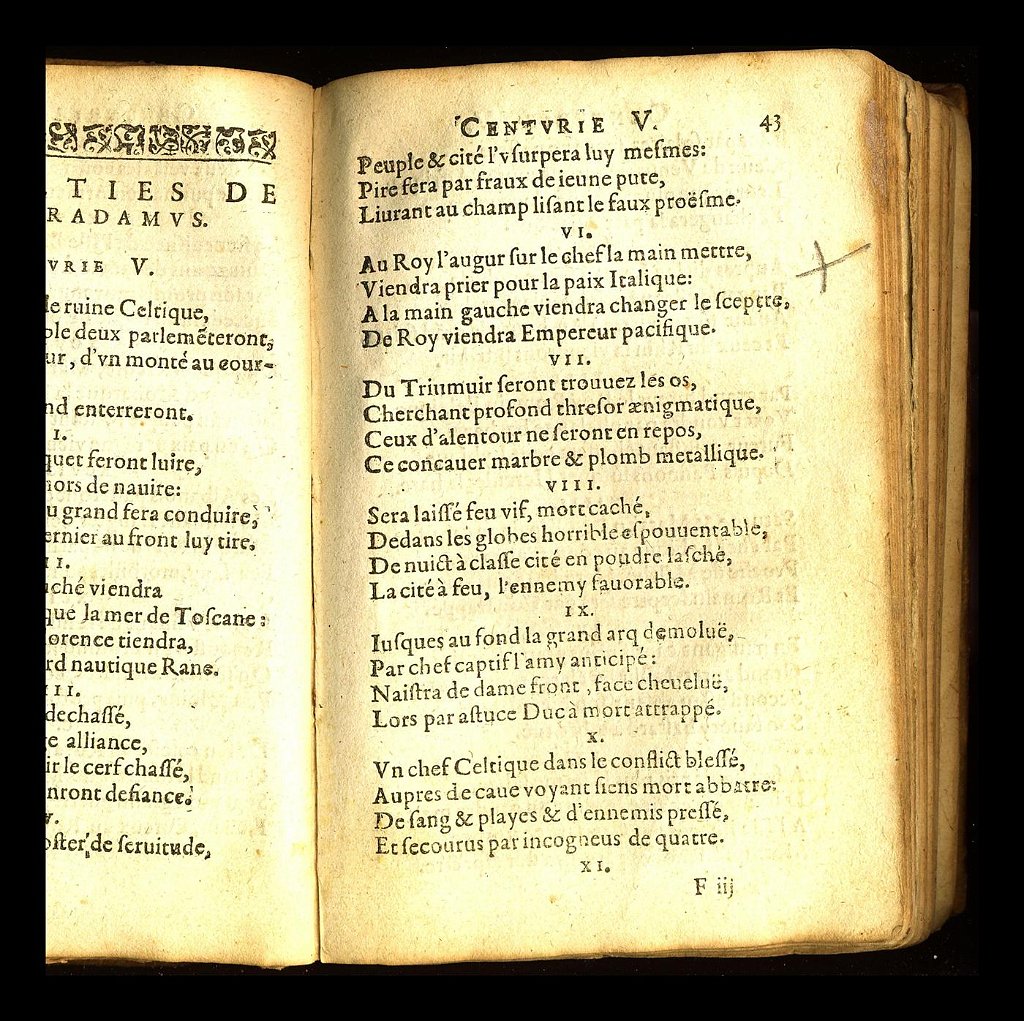 TIES DE
RADAMVS.
VRIE V.
ruine Celtique,
deux parlemẽteront,
d'vn monté au cour-
enterreront.
I.
feront luire,
de nauire:
grand fera conduire,
au front luy tire,
II.
viendra
que la mer de Toscane:
tiendra,
nautique Rane.
III.
dechaſſé,
alliance,
le cerf chaſſé,
defiance.
de ſeruitude,
CENTVRIE V. 43
Peuple & cité l'vſurpera luy meſmes:
Pire fera par fraux de ieune pute,
Liurant au champ liſant le faux proëſme.
VI.
Au Roy l'augur ſur le chef la main mettre,
Viendra prier pour la paix Italique:
A la main gauche viendra changer le ſceptre,
De Roy viendra Empereur pacifique.
VII.
Du Triumuir ſeront trouuez les os,
Cherchant profond threſor ænigmatique,
Ceux d'alentour ne ſeront en repos,
Ce concauer marbre & plomb metallique.
VIII.
Sera laiſſé feu vif, mort caché,
Dedans les globes horrible eſpouuentable,
De nuict à claſſe cité en poudre laſché,
La cité à feu, l'ennemy fauorable.
IX.
Iuſques au fond la grand arq demoluë,
Par chef captif l'amy anticipé:
Naiſtra de dame front, face cheueluë,
Lors par aſtuce Duc à mort attrappé.
X.
Vn chef Celtique dans le conflict bleſſé,
Aupres de caue voyant ſiens mort abbatre:
De ſang & playes & d'ennemis preſſé,
Et ſecourus par incogneus de quatre.
XI.
F iij